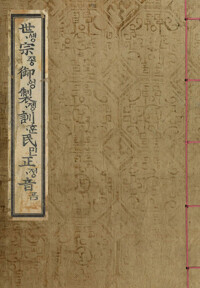 世·솅宗종御·엉製·졩訓·훈民민正·졍音ᅙᅳᆷ